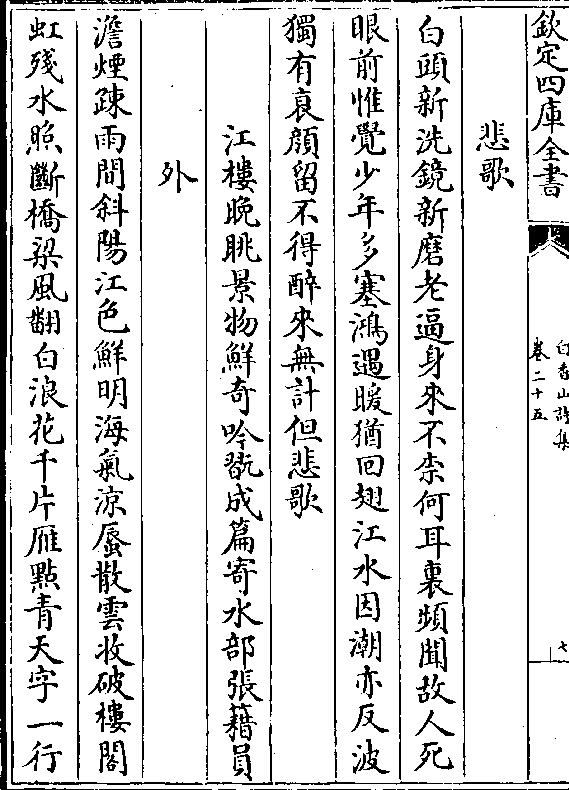 欽定四庫全書
白香山詩集
卷二十五
七
悲歌
白頭新洗鏡新磨老逼身來不柰何耳裏頻聞故人死
眼前惟覺少年多塞鴻遇暖猶回翅江水因潮亦反波
獨有衰顔留不得醉來無計但悲歌
江樓晚眺景物鮮奇吟翫成篇寄水部張籍員
外
澹煙疎雨間斜陽江色鮮明海氣涼蜃散雲收破樓閣
虹殘水照斷橋梁風翻白浪花千片雁點青天字一行